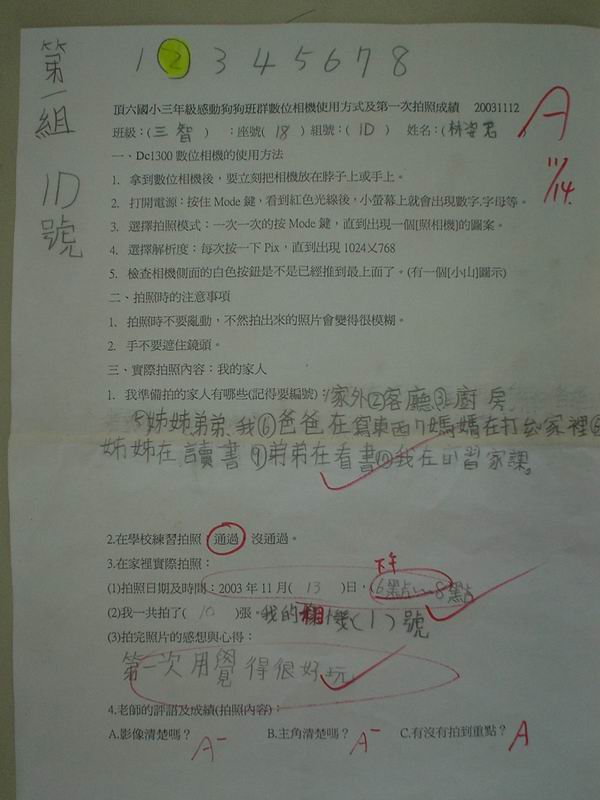 1 2 3 4 5 6 7 8
第一組 1D 號
頂六國小三年級感動狗狗班群數位相機使用方式及第一次拍照成績 20031112
A
班級：(三智) ：座號(18) 組號：(1D) 姓名：(林姿君
11/14.
一、Dc1300 數位相機的使用方法
1. 拿到數位相機後，要立刻把相機放在脖子上或手上。
2. 打開電源：按住 Mode 鍵，看到紅色光線後，小螢幕上就會出現數字.字母等。
3. 選擇拍照模式：一次一次的按 Mode 鍵，直到出現一個[照相機]的圖案。
4. 選擇解析度：每次按一下 Pix，直到出現 1024乂768
5. 檢查相機側面的白色按鈕是不是已經推到最上面了。(有一個[小山]圖示)
二、拍照時的注意事項
1. 拍照時不要亂動，不然拍出來的照片會變得很模糊。
2. 手不要遮住鏡頭。
三、實際拍照內容：我的家人
1. 我準備拍的家人有哪些(記得要編號)：家外②客廳③廚房
姊姊弟弟、我⑥爸爸在寫東西7媽媽在打 家裡
姊姊在讀書⑨弟弟在看書⑩我在 習家課。
2.在學校練習拍照：通過 沒通過。
3.在家裡實際拍照：
下午
(1)拍照日期及時間：2003 年 11 月( 13 )日，(6點~8點
(2)我一共拍了( 10 )張。我的相機(1)號
(3)拍完照片的感想與心得：
第一次用覺得很好玩
4.老師的評語及成績(拍照內容)：
A.影像清楚嗎？ A- B.主角清楚嗎？ A- C.有沒有拍到重點？ A